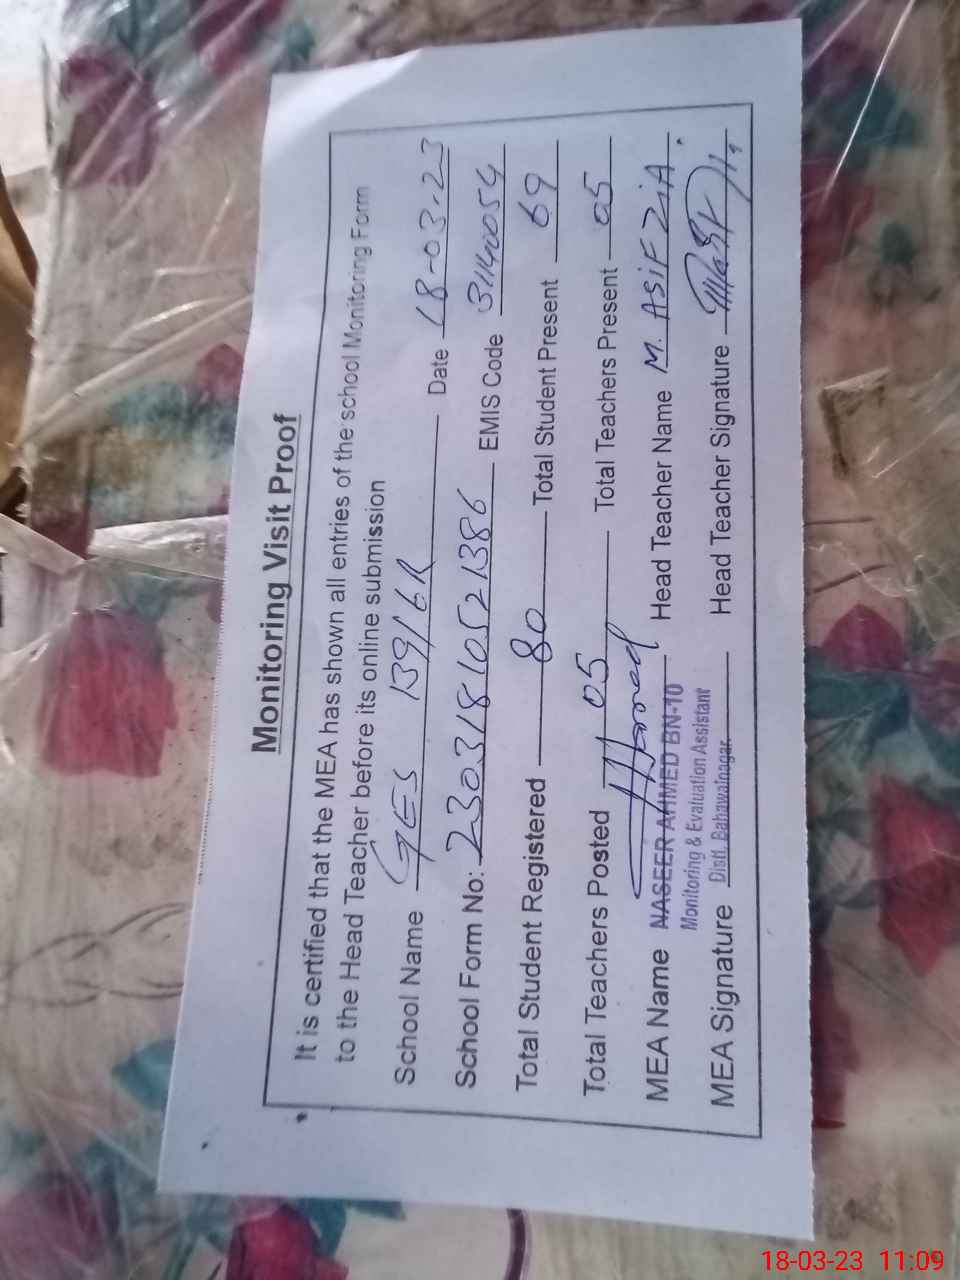 Monitoring Visit Proof
It is certified that the MEA has shown all entries of the school Monitoring Form
to the Head Teacher before its online submission
School Name GES 139/6R Date 18-03-23
School Form No: 23031810521386 EMIS Code 31140054
Total Student Registered 80 Total Student Present 69
Total Teachers Posted 05 Total Teachers Present 05
MEA Name NASEER AHMED BN-10 Head Teacher Name M. ASiF ZiA.
Monitoring & Evaluation Assistant
MEA Signature Distt. Bahawalnagar. Head Teacher Signature
18-03-23 11:09